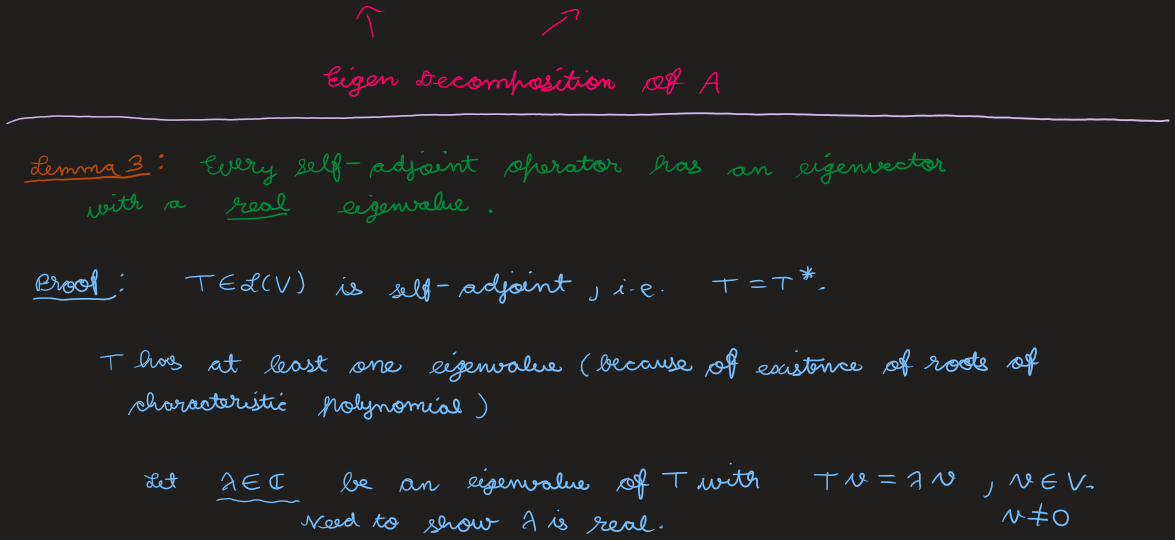 Eigen Decomposition of A
Lemma 3: Every self-adjoint operator has an eigenvector
with a real eigenvalue.
Proof: T∈L(V) is self-adjoint, i.e. T = T*.
T has at least one eigenvalue (because of existence of roots of
characteristic polynomial)
Let λ∈ℂ be an eigenvalue of T with Tv = λv, v∈V.
Need to show λ is real. v≠0